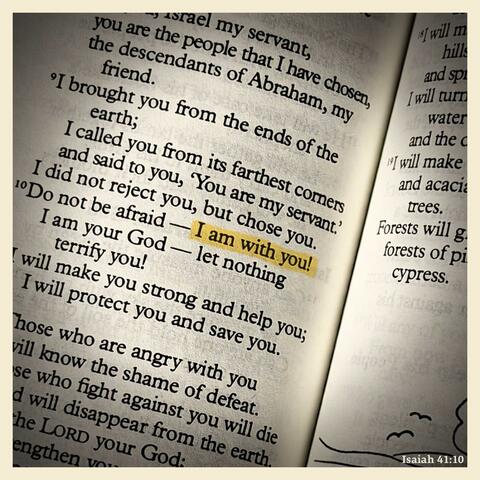 Israel my servant,
you are the people that I have chosen,
the descendants of Abraham, my
friend.
⁹I brought you from the ends of the
earth;
I called you from its farthest corners
and said to you, ‘You are my servant.’
I did not reject you, but chose you.
¹⁰Do not be afraid — I am with you!
I am your God — let nothing
terrify you!
I will make you strong and help you;
I will protect you and save you.
Those who are angry with you
will know the shame of defeat.
who fight against you will die
will disappear from the earth.
the LORD your God;
you
¹⁸I will m
hills
and spr
I will turn
water
and the d
¹⁹I will make
and acacia
trees.
Forests will g
forests of pi
cypress.
Isaiah 41:10